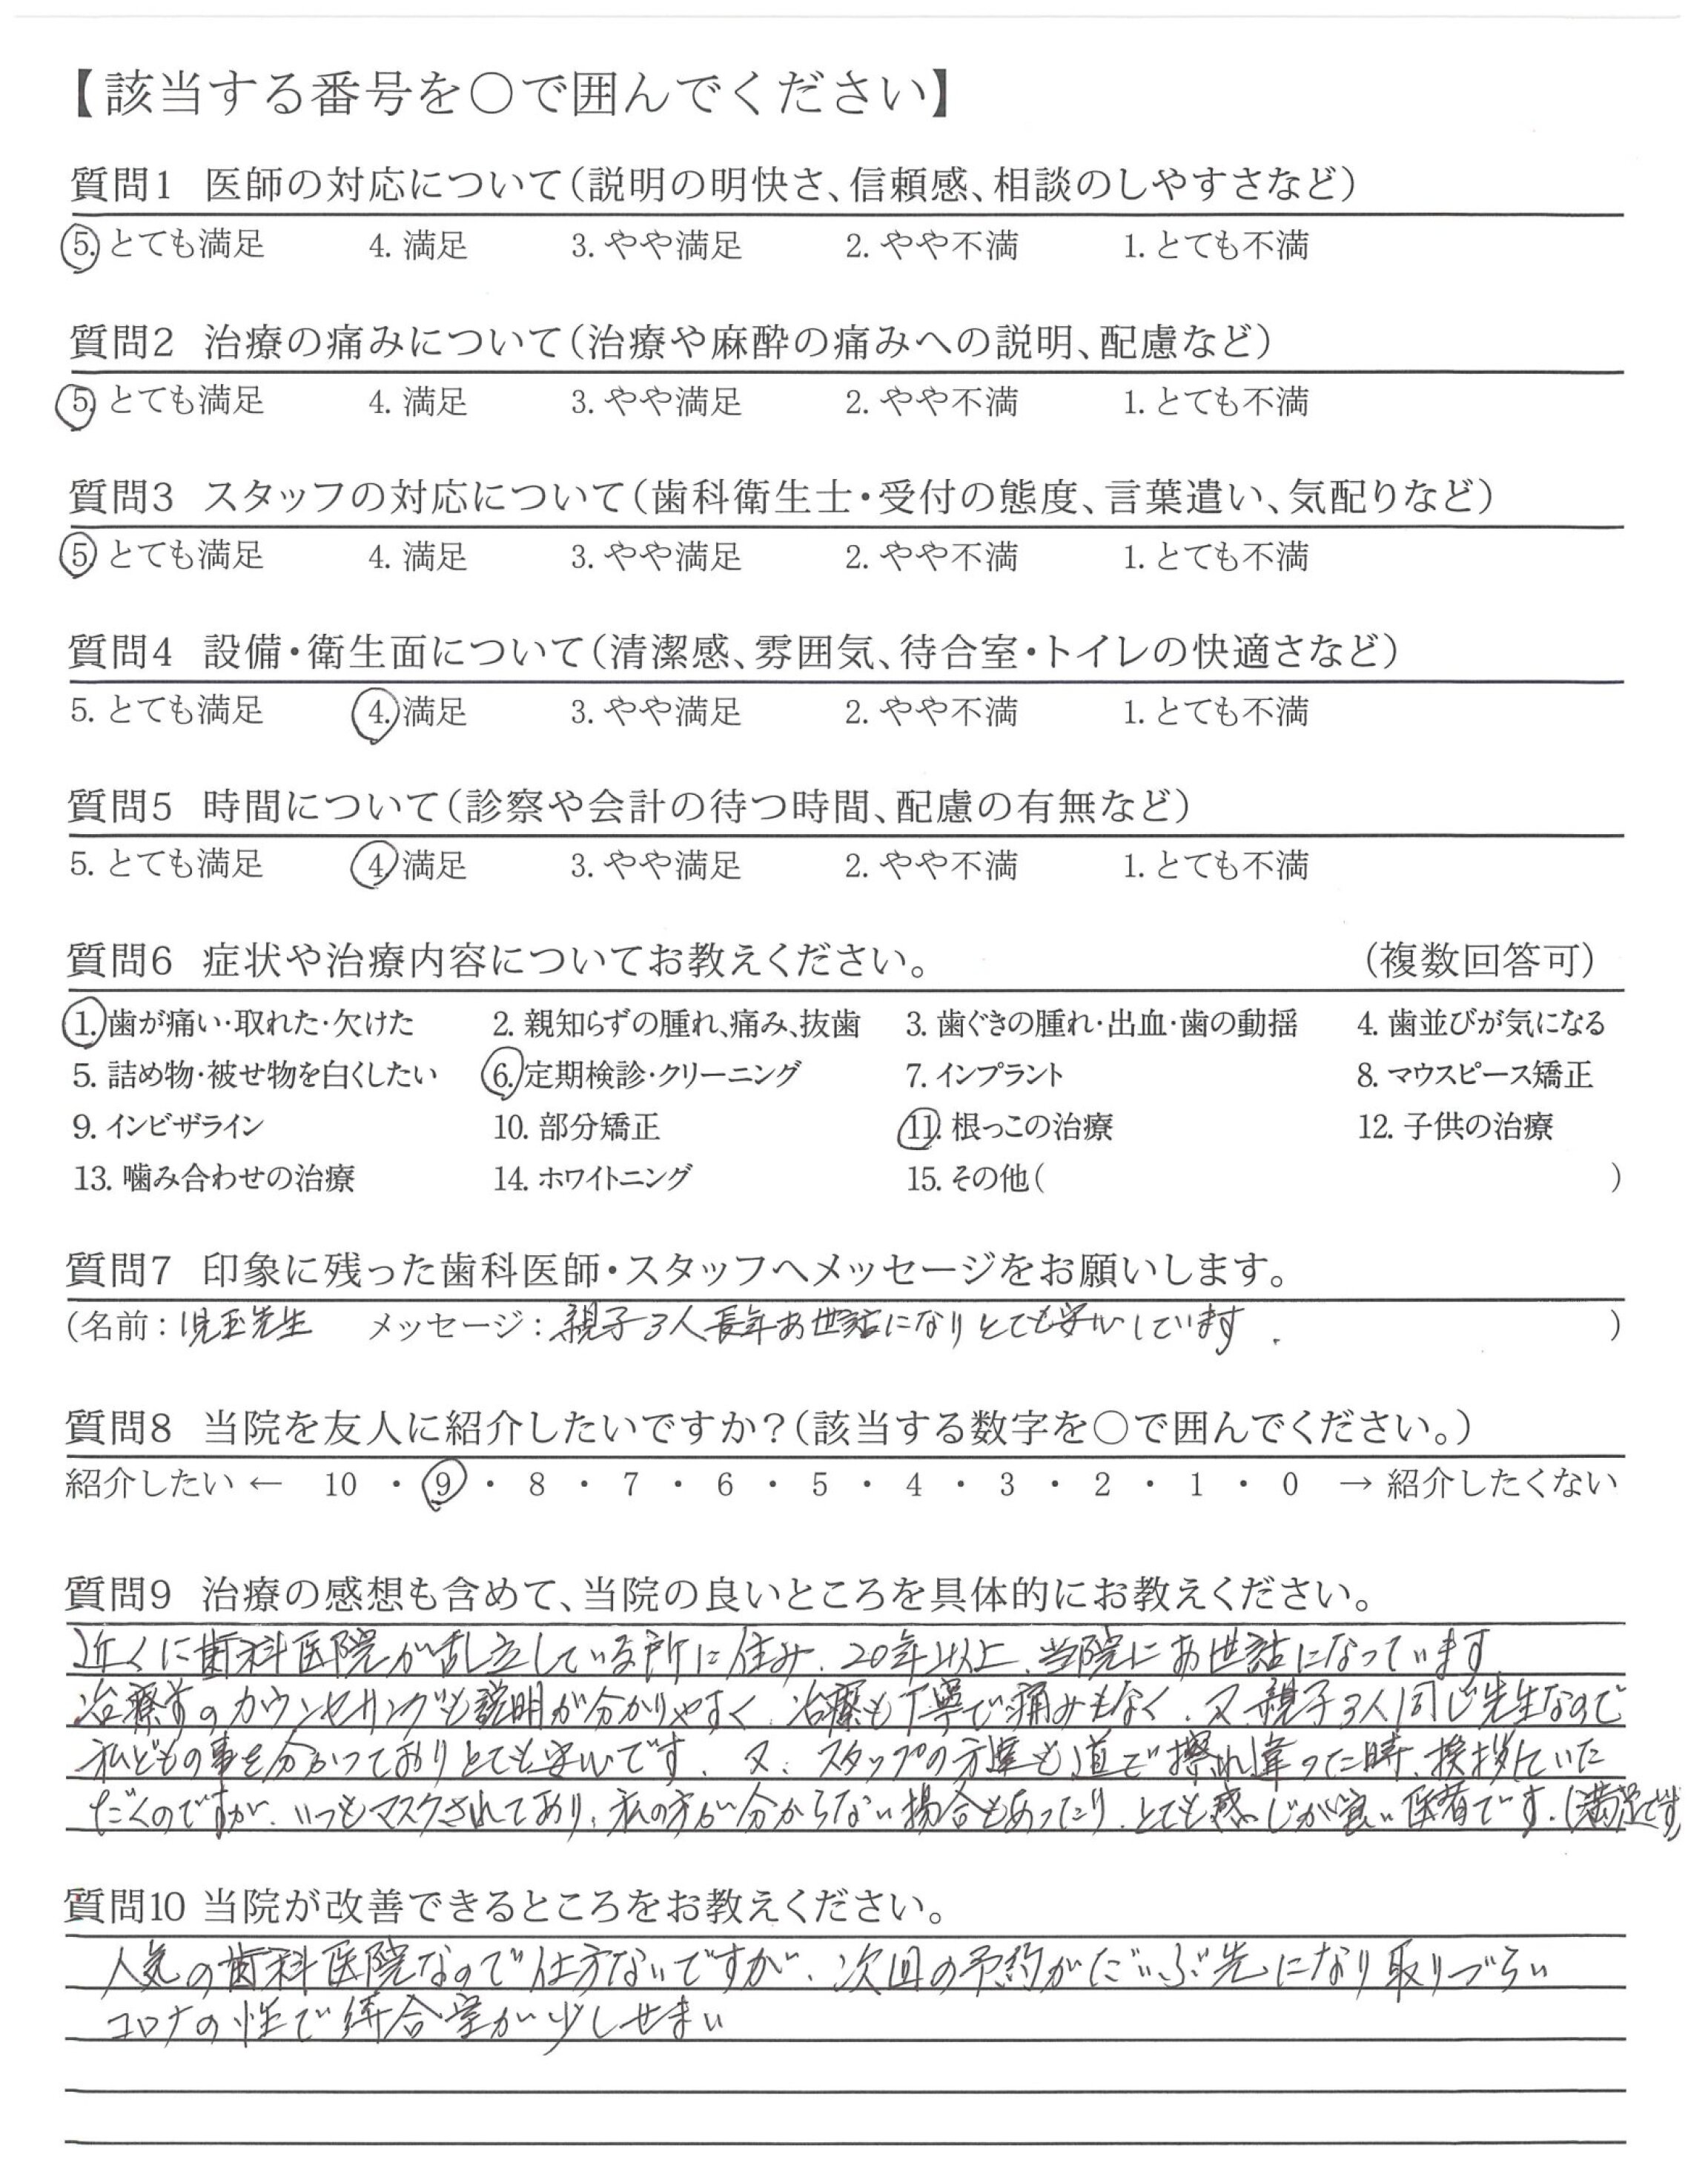 【該当する番号を〇で囲んでください】
質問1 医師の対応について(説明の明快さ、信頼感、相談のしやすさなど)
5. とても満足 4. 満足 3. やや満足 2. やや不満 1. とても不満
質問2 治療の痛みについて(治療や麻酔の痛みへの説明、配慮など)
5. とても満足 4. 満足 3. やや満足 2. やや不満 1. とても不満
質問3 スタッフの対応について(歯科衛生士・受付の態度、言葉遣い、気配りなど)
5. とても満足 4. 満足 3. やや満足 2. やや不満 1. とても不満
質問4 設備・衛生面について(清潔感、雰囲気、待合室・トイレの快適さなど)
5. とても満足 4. 満足 3. やや満足 2. やや不満 1. とても不満
質問5 時間について(診察や会計の待つ時間、配慮の有無など)
5. とても満足 4. 満足 3. やや満足 2. やや不満 1. とても不満
質問6 症状や治療内容についてお教えください。 (複数回答可)
1. 歯が痛い・取れた・欠けた 2. 親知らずの腫れ、痛み、抜歯 3. 歯ぐきの腫れ・出血・歯の動揺 4. 歯並びが気になる
5. 詰め物・被せ物を白くしたい 6. 定期検診・クリーニング 7. インプラント 8. マウスピース矯正
9. インビザライン 10. 部分矯正 11. 根っこの治療 12. 子供の治療
13. 噛み合わせの治療 14. ホワイトニング 15. その他( )
質問7 印象に残った歯科医師・スタッフへメッセージをお願いします。
(名前:児玉先生 メッセージ:親子3人長年お世話になりとても安心しています. )
質問8 当院を友人に紹介したいですか?(該当する数字を〇で囲んでください。)
紹介したい ← 10 ・ 9 ・ 8 ・ 7 ・ 6 ・ 5 ・ 4 ・ 3 ・ 2 ・ 1 ・ 0 → 紹介したくない
質問9 治療の感想も含めて、当院の良いところを具体的にお教えください。
近くに歯科医院が乱立している所に住み、20年以上、当院にお世話になっています
治療前のカウンセリングも説明が分かりやすく、治療も丁寧で痛みもなく、又、親子3人同じ先生なので
私どもの事を分かっておりとても安心です、又、スタッフの方達も道で擦れ違った時、挨拶していた
だくのですが、いつもマスクされており、私の方が分からない場合もあったり、とても感じが良い医者です.(満足です)
質問10 当院が改善できるところをお教えください。
人気の歯科医院なので仕方ないですが、次回の予約がだいぶ先になり取りづらい
コロナの性で待合室が少しせまい